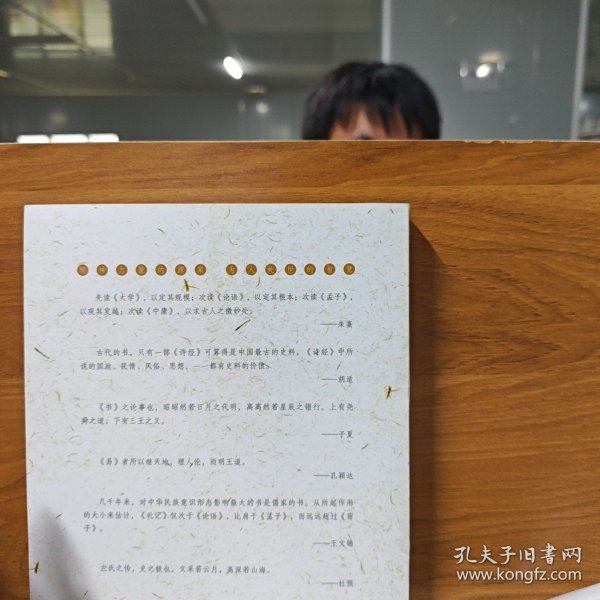 先读《大学》，以定其规模；次读《论语》，以定其根本；次读《孟子》，
以观其发越；次读《中庸》，以求古人之微妙处。
——朱熹
古代的书，只有一部《诗经》可算得是中国最古的史料，《诗经》中所
说的国政、民情、风俗、思想，一一都有史料的价值。
——胡适
《书》之论事也，昭昭然若日月之代明，离离然若星辰之错行，上有尧
舜之道，下有三王之义。
——子夏
《易》者所以继天地，理人伦，而明王道。
——孔颖达
几千年来，对中华民族意识形态影响最大的书是儒家的书。从所起作用
的大小来估计，《礼记》仅次于《论语》，比肩于《孟子》，而远远超过《荀
子》。
——王文锦
左氏之传，史之极也，文采若云月，高深若山海。
——杜预
孔夫子旧书网
www.kongfz.com